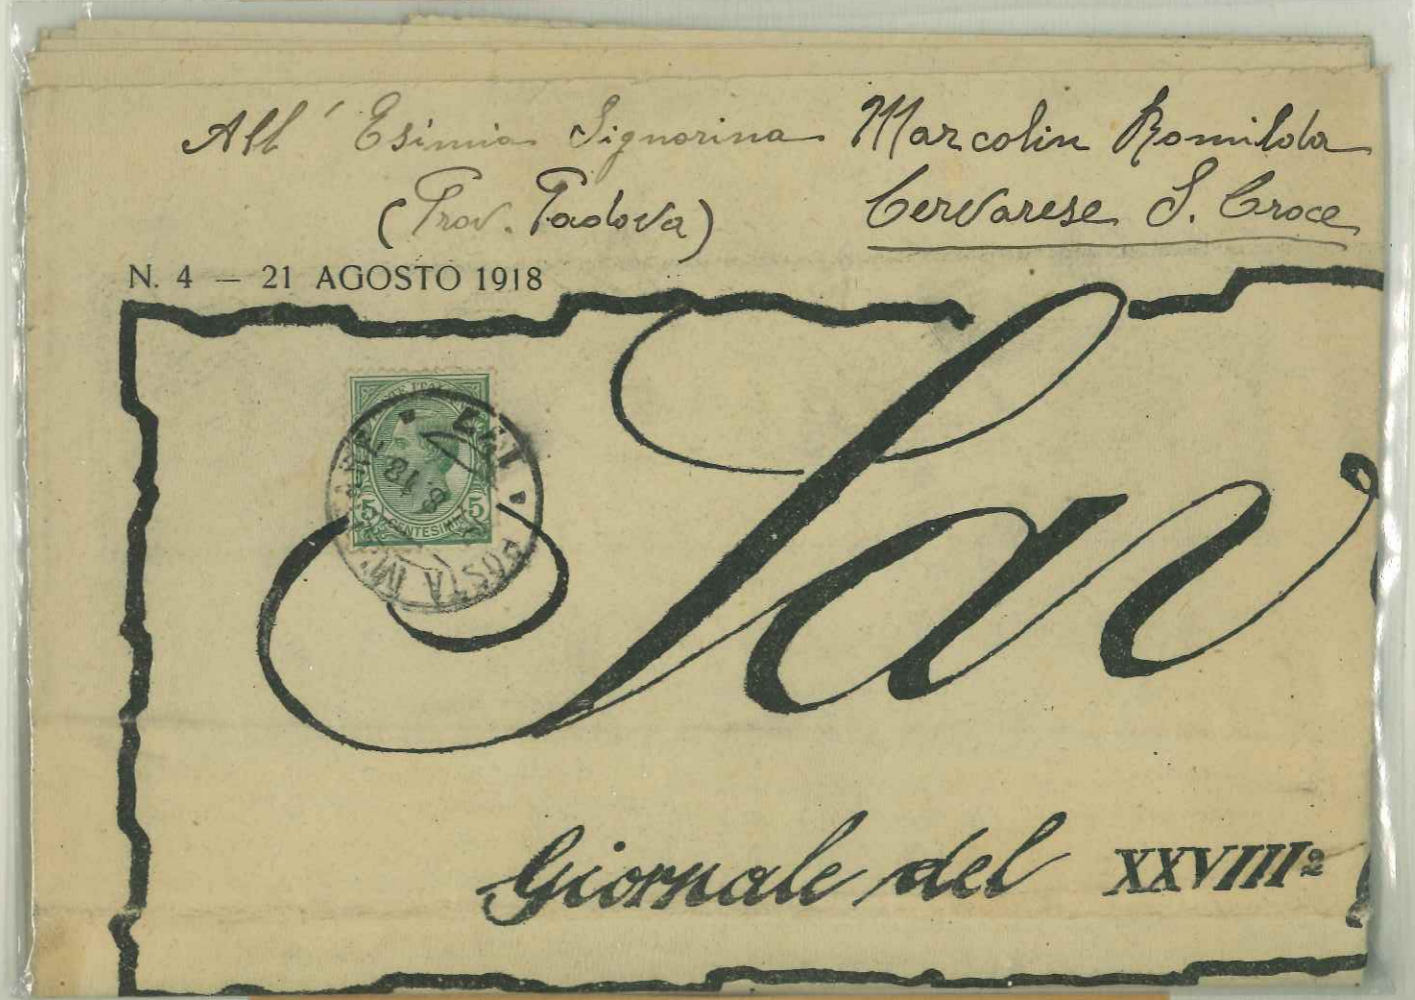 All' Esimia Signorina Marcolin Romilda
(Prov. Padova) Cervarese S. Croce
N. 4 — 21 AGOSTO 1918
Sav
5 CENTESIMI 5
POSTA
Giornale del XXVIIIº